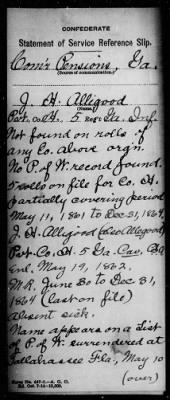 CONFEDERATE
Statement of Service Reference Slip.
Com'r Pensions, Ga.
(Source of communication.)
J. H. Alligood
(Name.)
Pvt. Co. H. 5 Reg't Ga. Inf.
Not found on rolls of
any Co. Above orgn.
No P. of W. record found.
5 rolls on file for Co. H.
partially covering period
May 11, 1861 to Dec 31, 1864.
J. H. Alligood (also Allegood)
Pvt. Co. H. 5 Ga. Cav. CSA
Enl. May 19, 1862.
M.R. June 30 to Dec 31,
1864 (last on file)
absent sick.
Name appears on a List
of P. of W. surrendered at
Tallahassee Fla, May 10
(over)